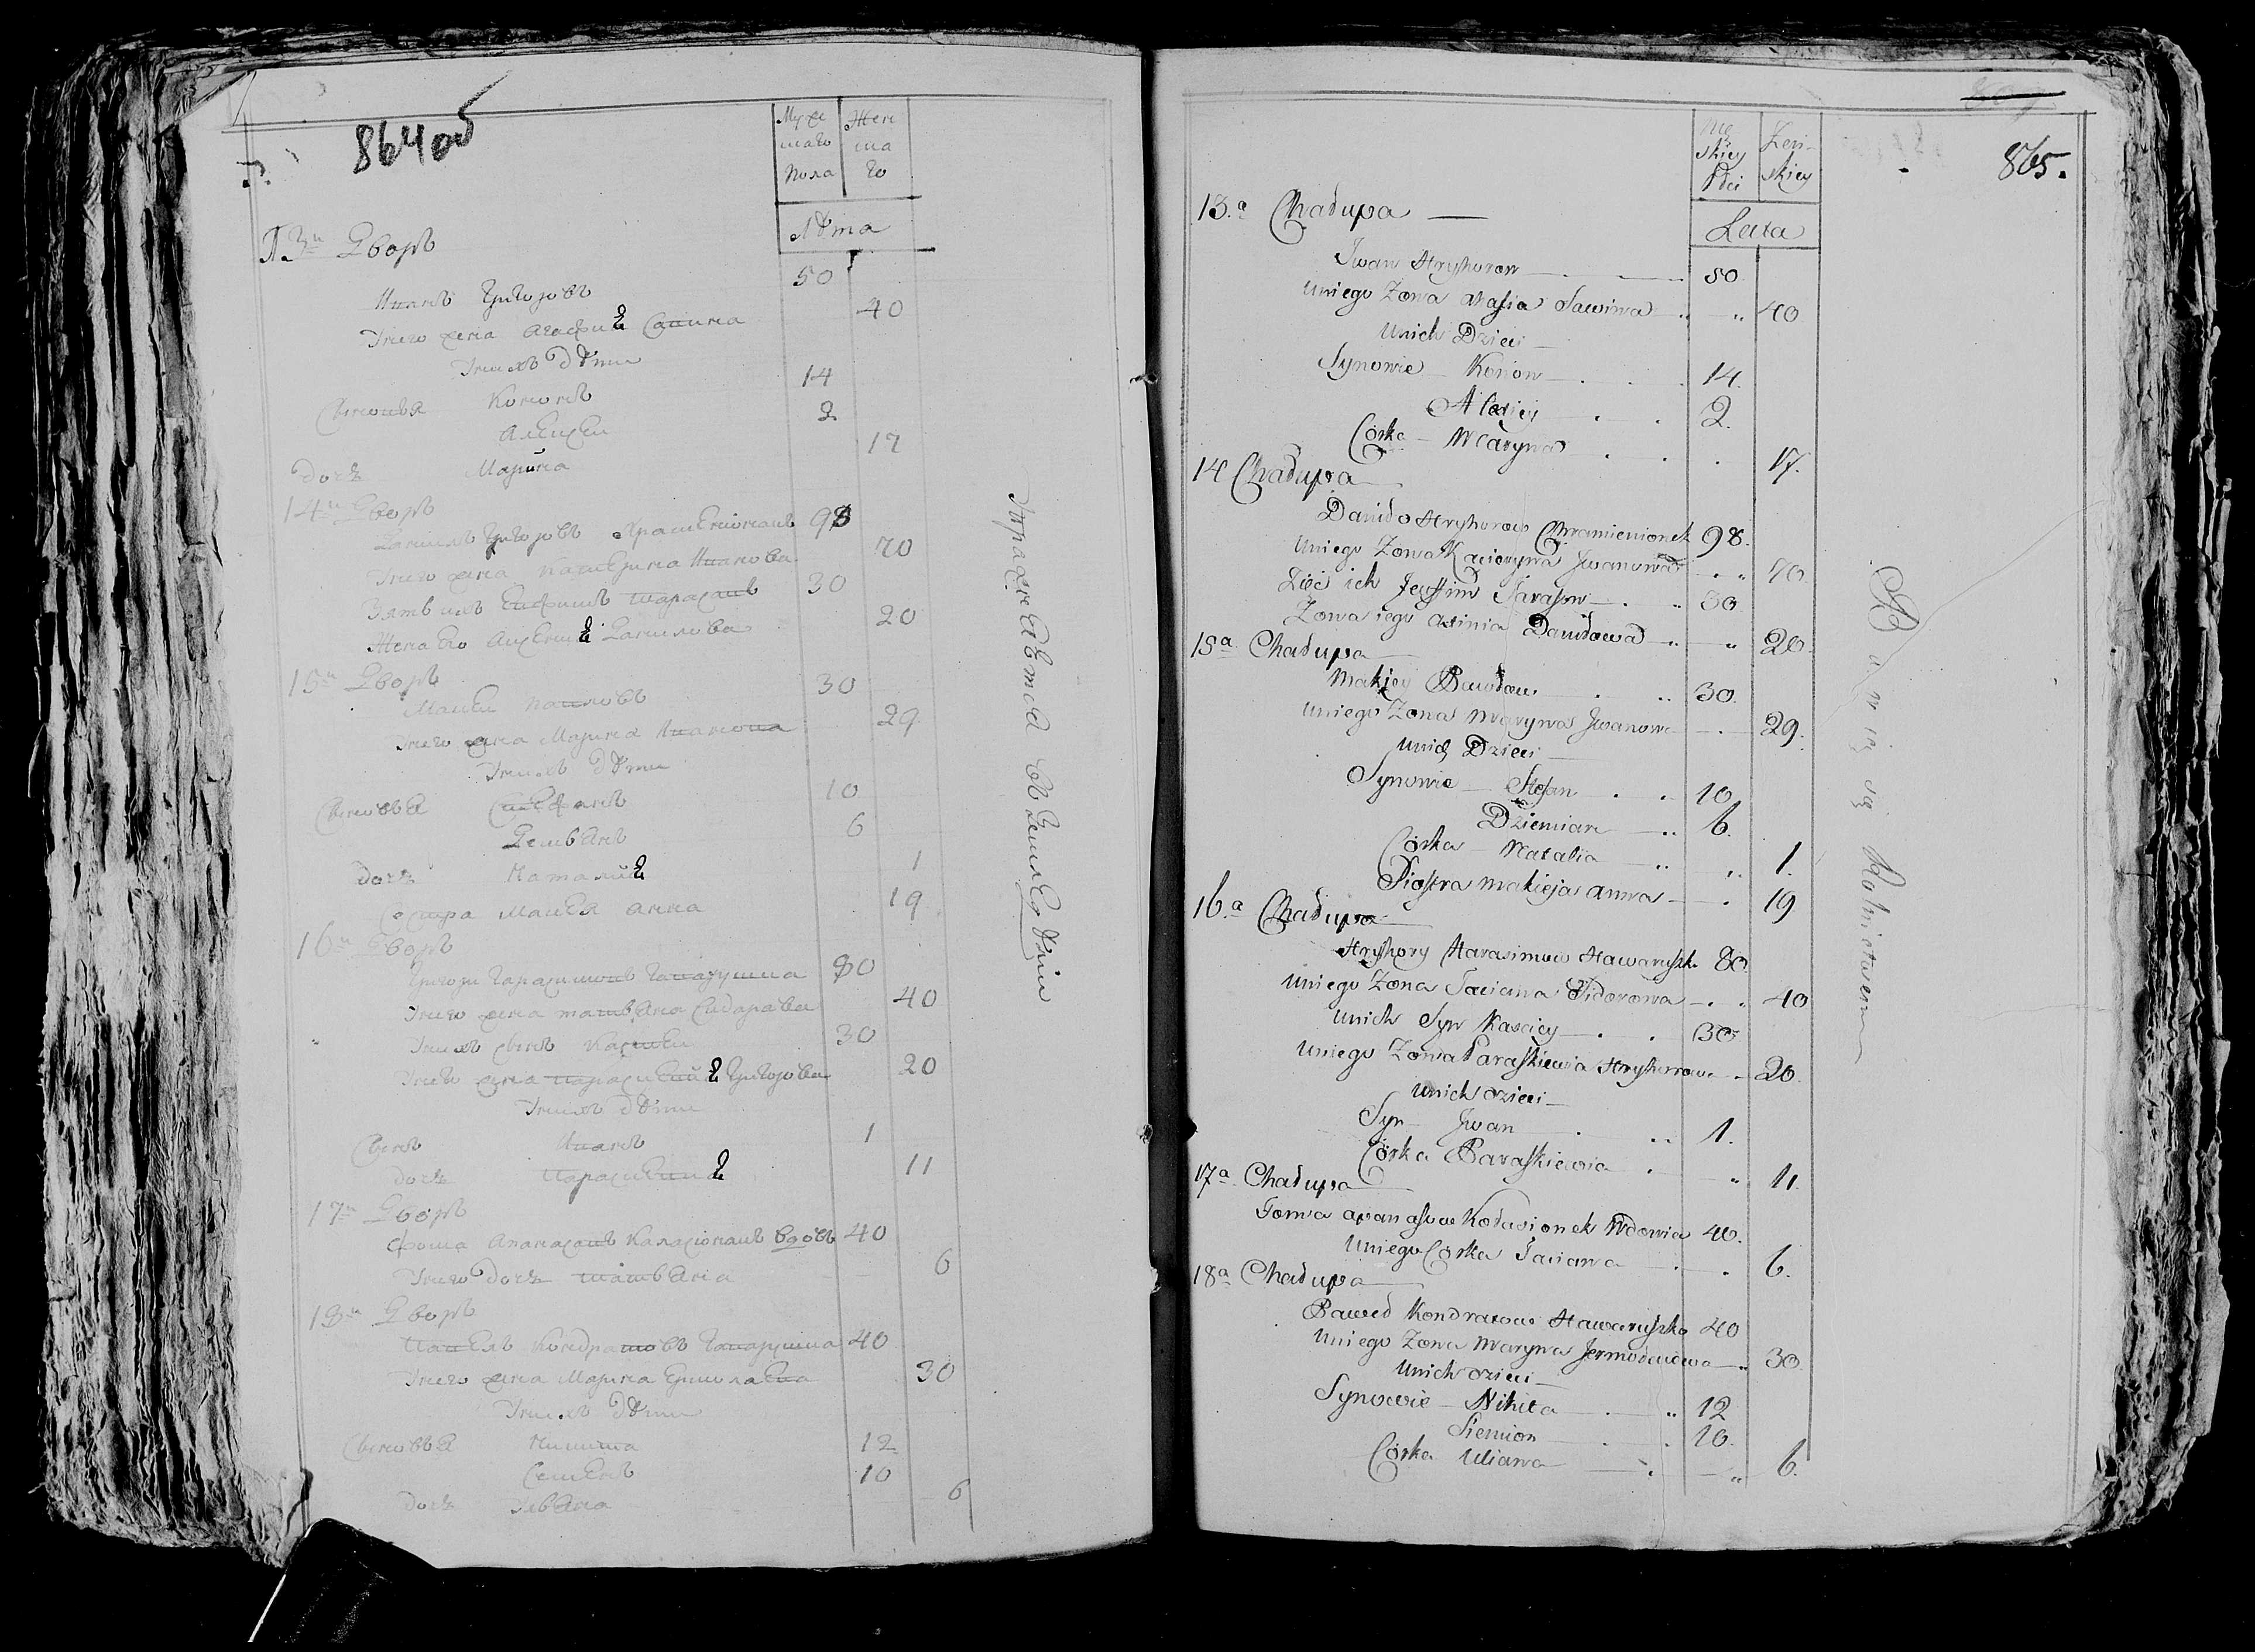 864об
Муже
ска��о
пола
Жен
ска
го
Лѣта
13й Дворъ
Иванъ Григоровъ 50
У него жена Агафия Савина 40
У нихъ дѣти
Сыновья Кононъ 14
Алексей 2
Дочь Марина 17
14й Дворъ
Данилъ Григоровъ 98
У него жена Катерина Иванова 70
Зять ихъ Евфимъ Тарасовъ 30
Жена его Аксения Данилова 20
15й Дворъ
Макей Павловъ 30
У него жена Марина Иванова 29
У нихъ дѣти
Сыновья Стефанъ 10
Демьянъ 6
Дочь Наталия 1
Сестра Макея Анна 19
16й Дворъ
Григори Гарасимовъ Гаварушка 80
У него жена Татьяна Сидарова 40
У нихъ сынъ Кастей 30
У него жена Параскевия Григорова 20
У нихъ дѣти
Сынъ Иванъ 1
Дочь Параскевия 11
17й Дворъ
Фома Апанасовъ Каласіонакъ вдовъ 40
У него дочь Татьяна 6
18й Дворъ
Павелъ Кондратовъ Гаварушка 40
У него жена Марина Ермолаева 30
У нихъ дѣти
Сыновья Никита 12
Семенъ 10
Дочь Ульяна 6
Упражняется въ Земледѣліи
865.
Mę-
skiey
Płci
Żeń-
skiey
Leta
13.a Chałupa
Iwan Hryhorow 50
U niego Żona Ahafia Sawina 40
U nich Dzieci
Synowie Konon 14.
Alexiey 2.
Corka Maryna 17.
14 Chałupa
Daniło Hryhorow Chramienionek 98.
U niego Żona Kacieryna Iwanowa 70.
Zięć ich Jewfim Tarasow 30
Żona iego Axinia Daniłowa 20.
15a Chałupa
Makiey Pawłow 30.
U niego Żona Maryna Iwanowa 29.
U nich Dzieci
Synowie Stefan 10.
Dziemian 6.
Corka Natalia 1.
Siostra Makieja Anna 19.
16.a Chałupa
Hryhory Harasimow Hawaruszk. 80.
U niego Żona Taciana Sidorowa 40
U nich Syn Kasciey 30
U niego Żona Paraskiewia Hryhorowa 20.
U nich dzieci
Syn Iwan 1.
Corka Paraskiewia 11.
17a Chałupa
Foma Apanasow Kołasionek Wdowiec 40.
U niego Corka Taciana 6.
18a Chałupa
Paweł Kondratow Hawaruszko 40
U niego Żona Maryna Jermołaiewa 30.
U nich dzieci
Synowie Nikita 12
Siemion 10.
Corka Uliana 6.
Bawią się Rolnictwem